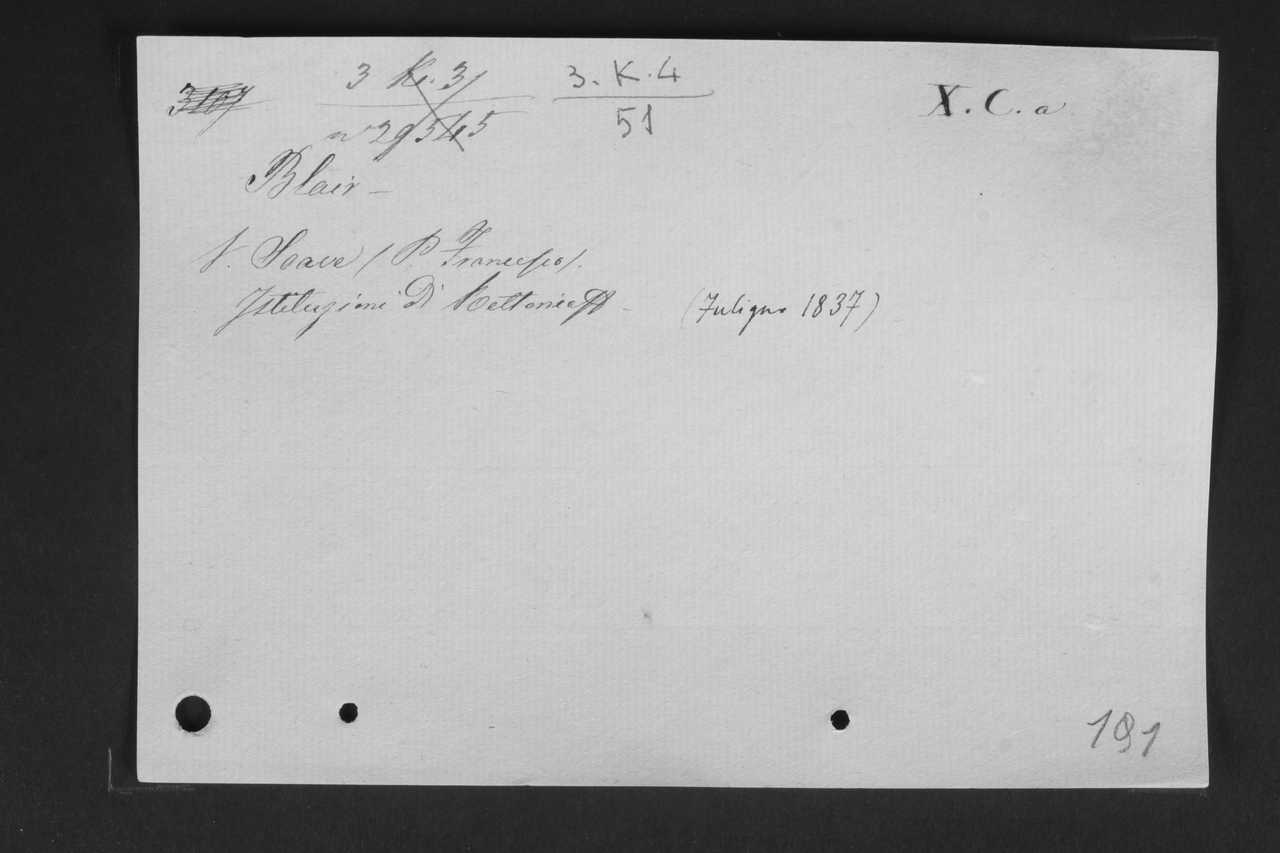 3107 3 K. 31 3. K. 4 X. C. a
n° 29545 51
Blair —
V. Soave (P. Francesco).
Istituzioni di Rettorica — (Fuligno 1837)
191